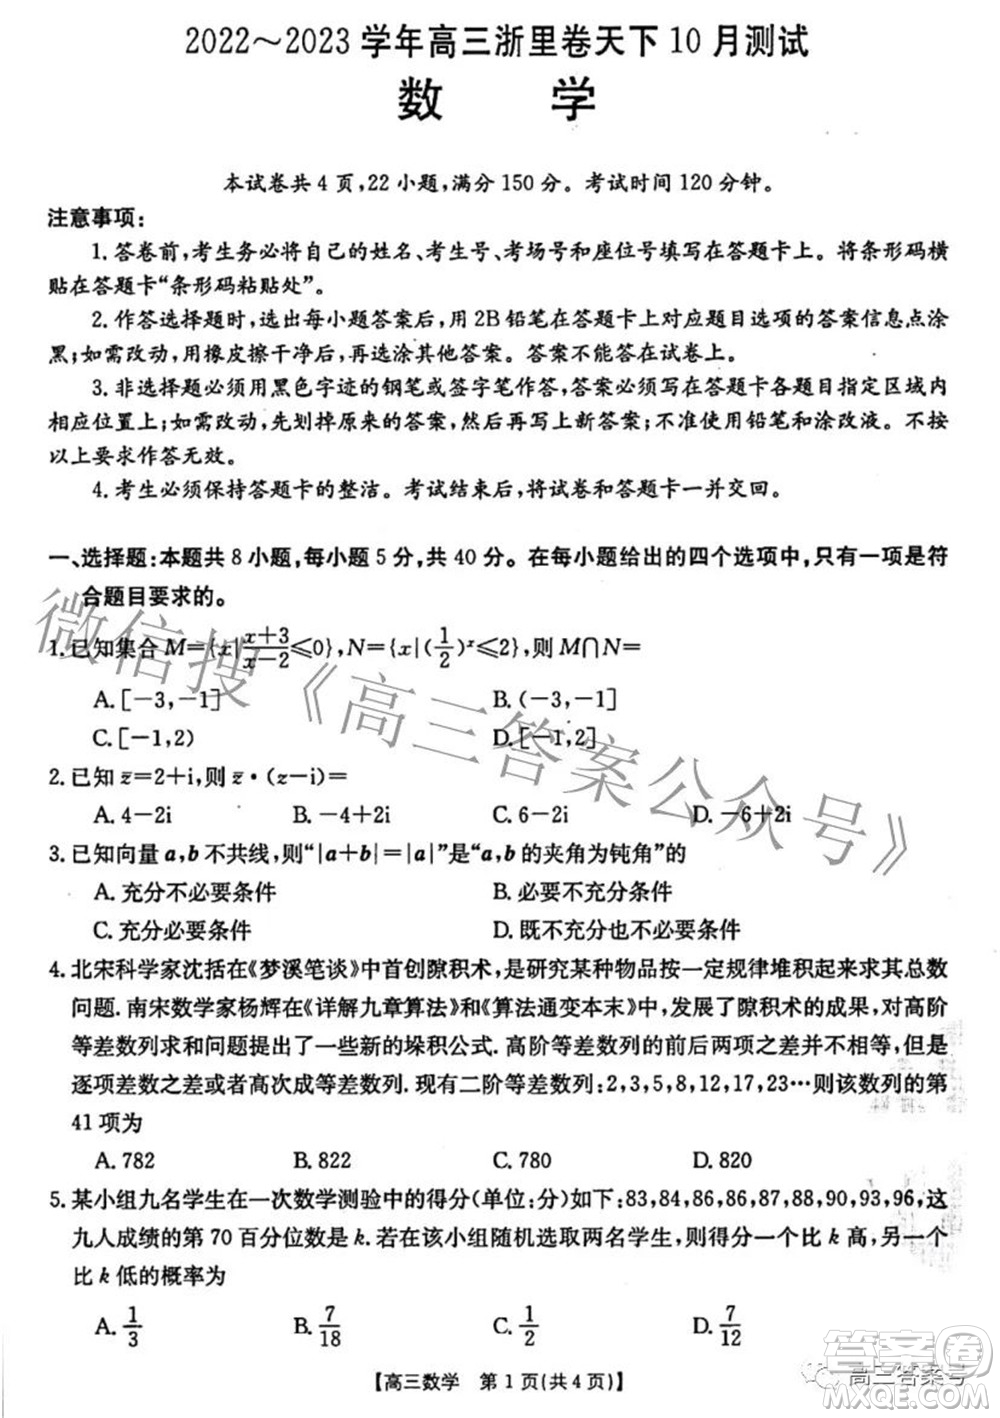 2022～2023 学年高三浙里卷天下 10 月测试
数 学
本试卷共 4 页,22 小题,满分 150 分。考试时间 120 分钟。
注意事项:
1. 答卷前,考生务必将自己的姓名、考生号、考场号和座位号填写在答题卡上。将条形码横
贴在答题卡“条形码粘贴处”。
2. 作答选择题时,选出每小题答案后,用 2B 铅笔在答题卡上对应题目选项的答案信息点涂
黑;如需改动,用橡皮擦干净后,再选涂其他答案。答案不能答在试卷上。
3. 非选择题必须用黑色字迹的钢笔或签字笔作答,答案必须写在答题卡各题目指定区域内
相应位置上;如需改动,先划掉原来的答案,然后再写上新答案;不准使用铅笔和涂改液。不按
以上要求作答无效。
4. 考生必须保持答题卡的整洁。考试结束后,将试卷和答题卡一并交回。
一、选择题:本题共 8 小题,每小题 5 分,共 40 分。在每小题给出的四个选项中,只有一项是符
合题目要求的。
1. 已知集合 M={x|\frac{x+3}{x-2}≤0},N={x|(\frac{1}{2})^x≤2},则 M∩N=
A. [-3,-1] B. (-3,-1]
C. [-1,2) D. [-1,2]
2. 已知 z̄=2+i,则 z̄·(z-i)=
A. 4-2i B. -4+2i C. 6-2i D. -6+2i
3. 已知向量 a,b 不共线,则“|a+b|=|a|”是“a,b 的夹角为钝角”的
A. 充分不必要条件 B. 必要不充分条件
C. 充分必要条件 D. 既不充分也不必要条件
4. 北宋科学家沈括在《梦溪笔谈》中首创隙积术,是研究某种物品按一定规律堆积起来求其总数
问题. 南宋数学家杨辉在《详解九章算法》和《算法通变本末》中,发展了隙积术的成果,对高阶
等差数列求和问题提出了一些新的垛积公式. 高阶等差数列的前后两项之差并不相等,但是
逐项差数之差或者高次成等差数列. 现有二阶等差数列:2,3,5,8,12,17,23…则该数列的第
41 项为
A. 782 B. 822 C. 780 D. 820
5. 某小组九名学生在一次数学测验中的得分(单位:分)如下:83,84,86,86,87,88,90,93,96,这
九人成绩的第 70 百分位数是 k. 若在该小组随机选取两名学生,则得分一个比 k 高,另一个
比 k 低的概率为
A. \frac{1}{3} B. \frac{7}{18} C. \frac{1}{2} D. \frac{7}{12}
【高三数学 第 1 页(共 4 页)】
微信搜《高三答案公众号》
高三答案号
答案圈
MXQE.COM